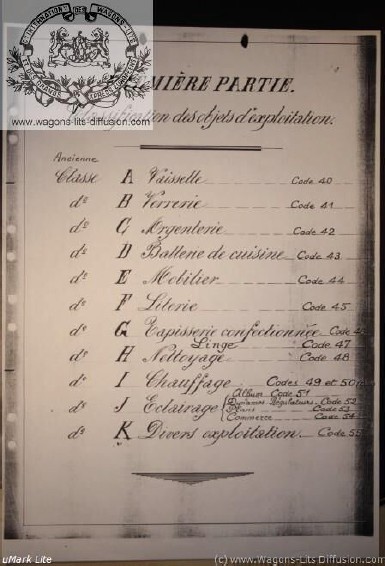 www.wagons-lits-diffusion.com
MIÈRE PARTIE.
Classification des objets d'exploitation.
Ancienne
Classe A Vaisselle Code 40
do B Verrerie Code 41
do C Argenterie Code 42
do D Batterie de cuisine Code 43
do E Mobilier Code 44
do F Literie Code 45
do G Tapisserie confectionnée Code 46
Linge Code 47
do H Nettoyage Code 48
do I Chauffage Codes 49 et 50
Album Code 51
do J Eclairage Code 52
Divers Code 53
Commerce Code 54
do K Divers exploitation Code 55
uMark Lite
(c) www.Wagons-Lits-Diffusion.com